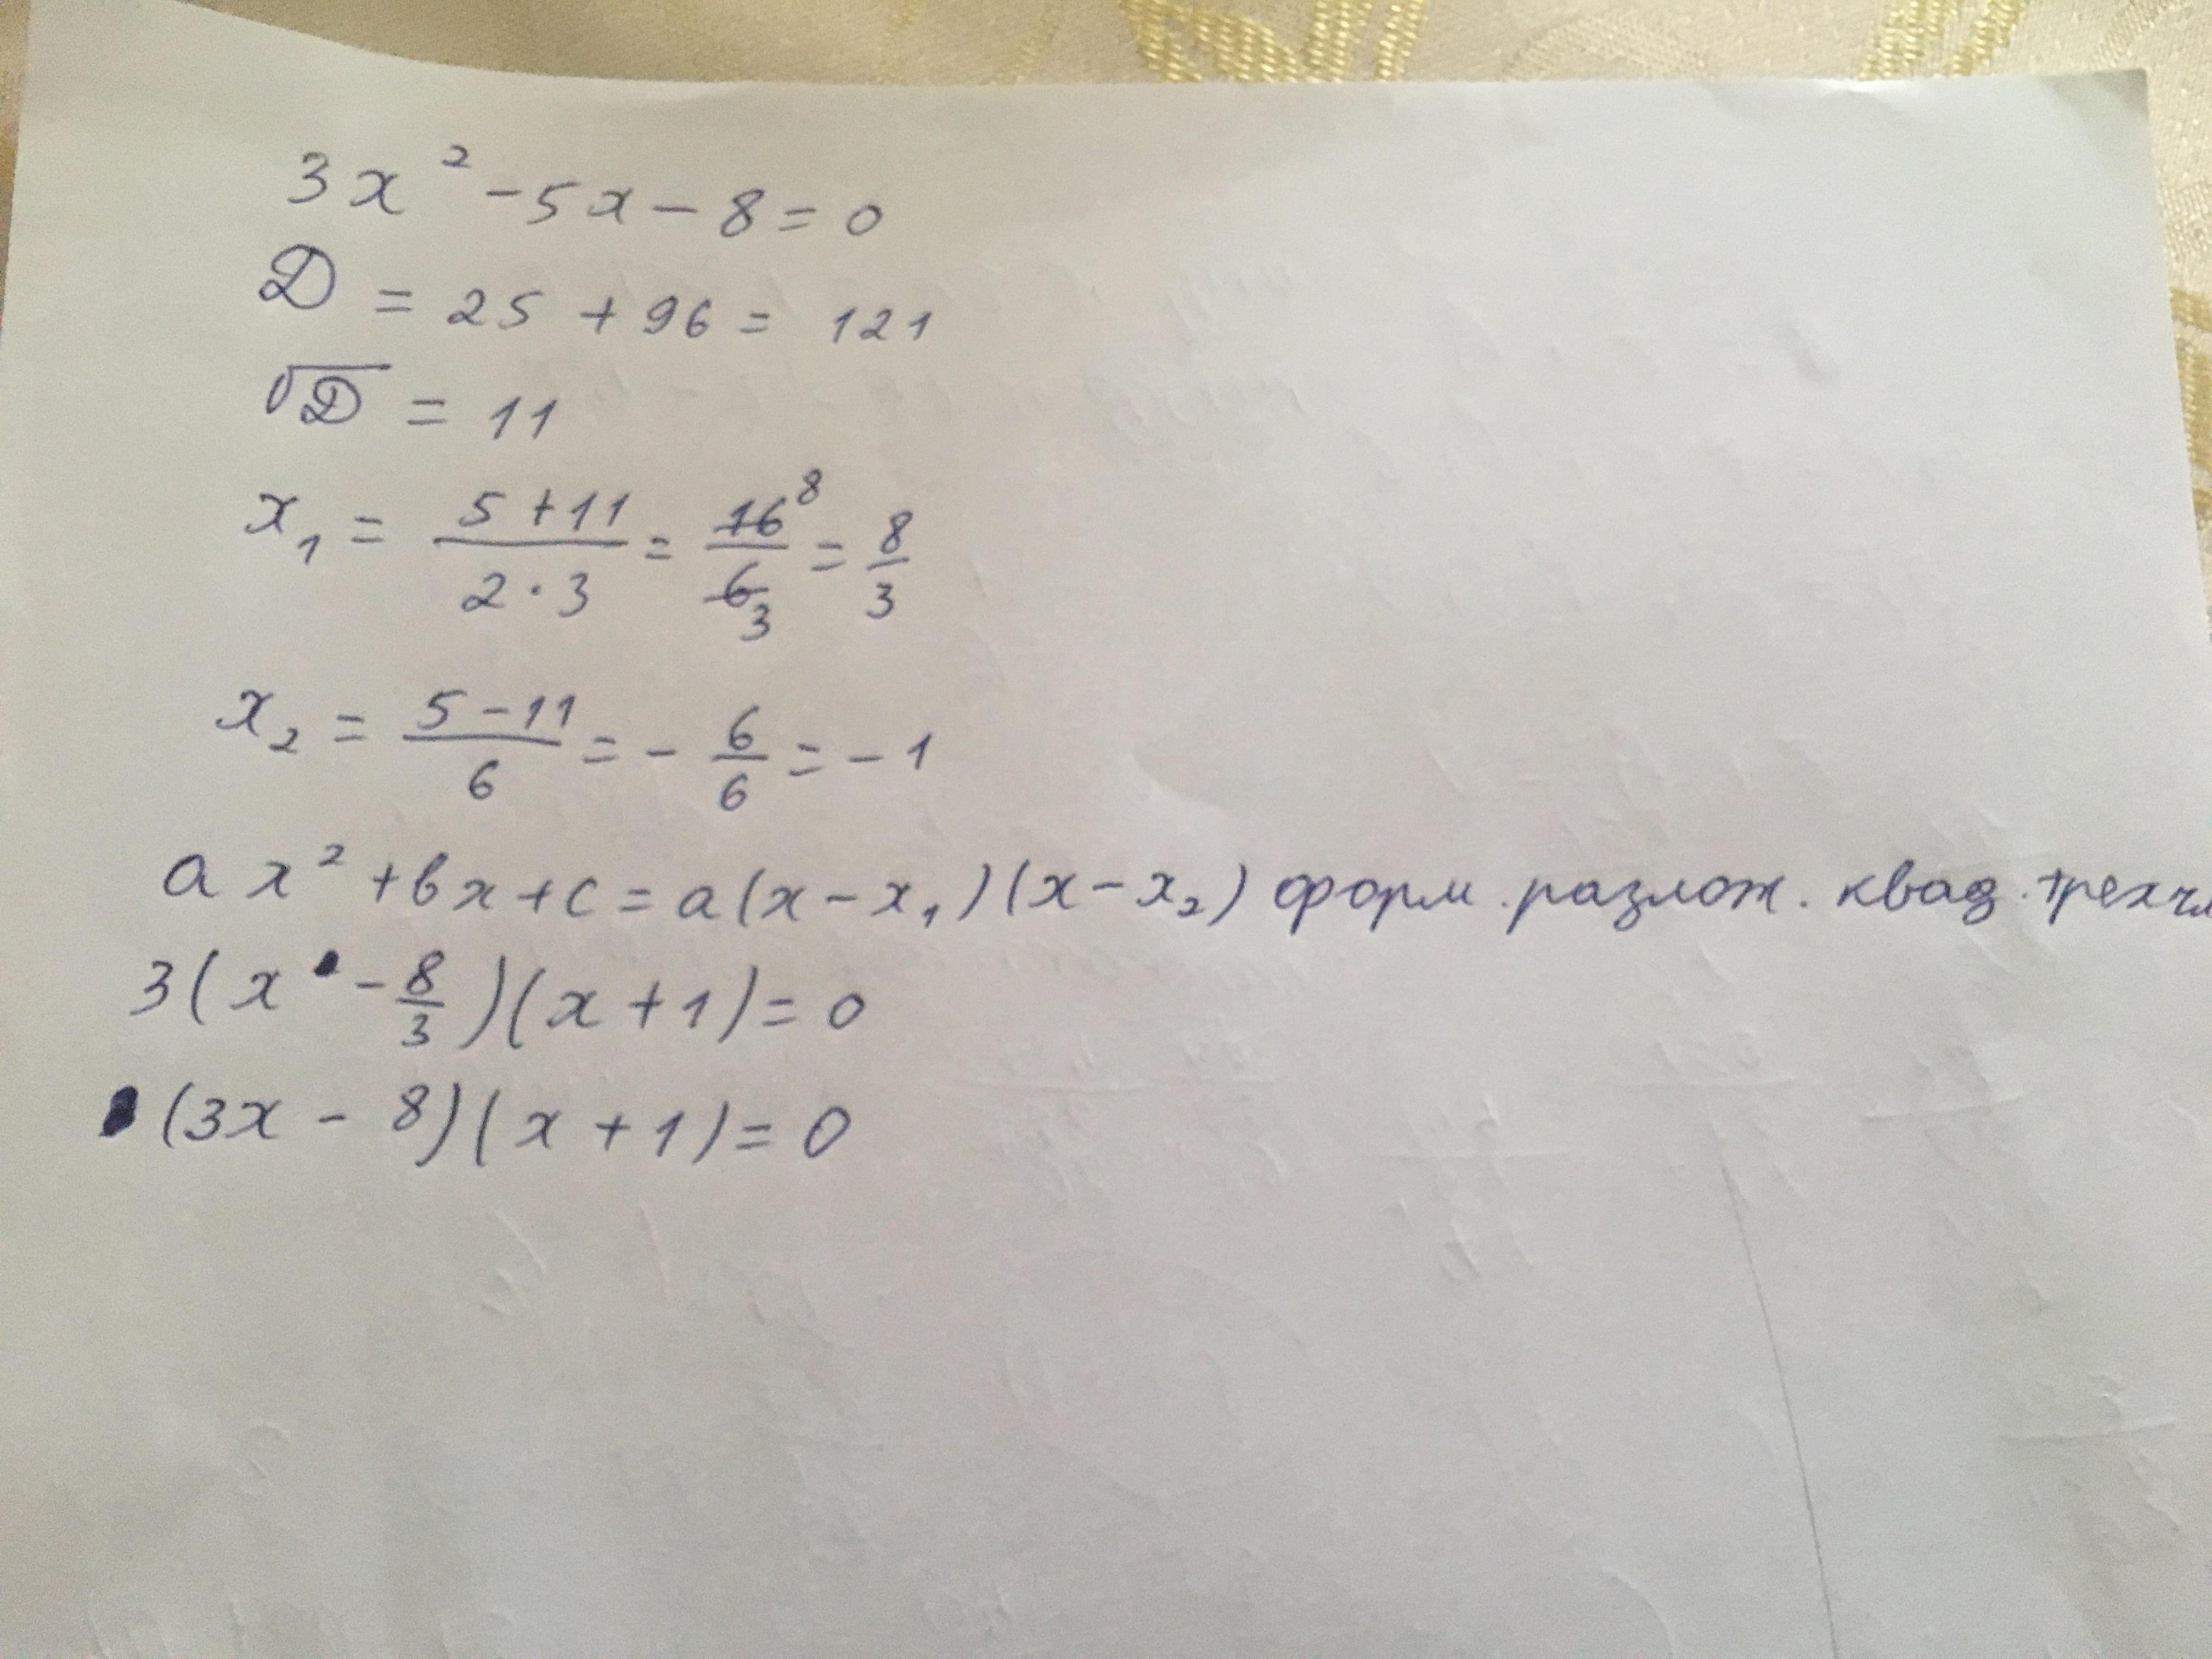 3x² - 5x - 8 = 0
D = 25 + 96 = 121
√D = 11
x₁ = (5 + 11)/(2 · 3) = 16/6 8/3 = 8/3
x₂ = (5 - 11)/6 = - 6/6 = - 1
ax² + bx + c = a(x - x₁)(x - x₂) форм. разлож. квад. трехчл
3(x - 8/3)(x + 1) = 0
(3x - 8)(x + 1) = 0